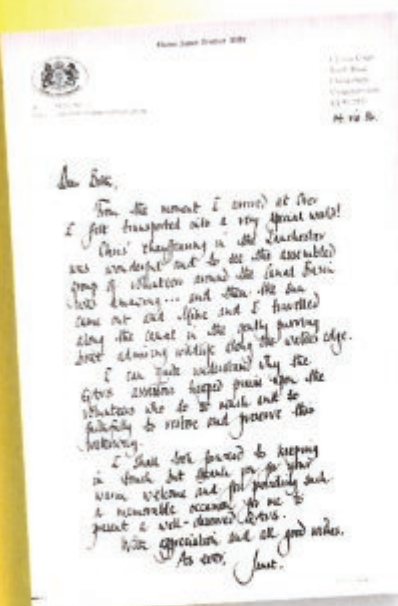 Dear
From the moment I arrived at Over
I felt transported into a very special world!
Chris' chauffeuring in the Lanchester
was wonderful and to see the assembled
group of volunteers around the Canal Basin
was amazing... and then the sun
came out and Mike and I travelled
along the canal in the gently purring
boat admiring wildlife along the water's edge.
I can quite understand why the
QAVS assessors heaped praise upon the
volunteers who do so much and so
faithfully to restore and preserve this
waterway.
I shall look forward to keeping
in touch but thank you for your
warm welcome and for providing such
a memorable occasion for me to
present a well-deserved QAVS.
With appreciation and all good wishes.
As ever,
Janet.